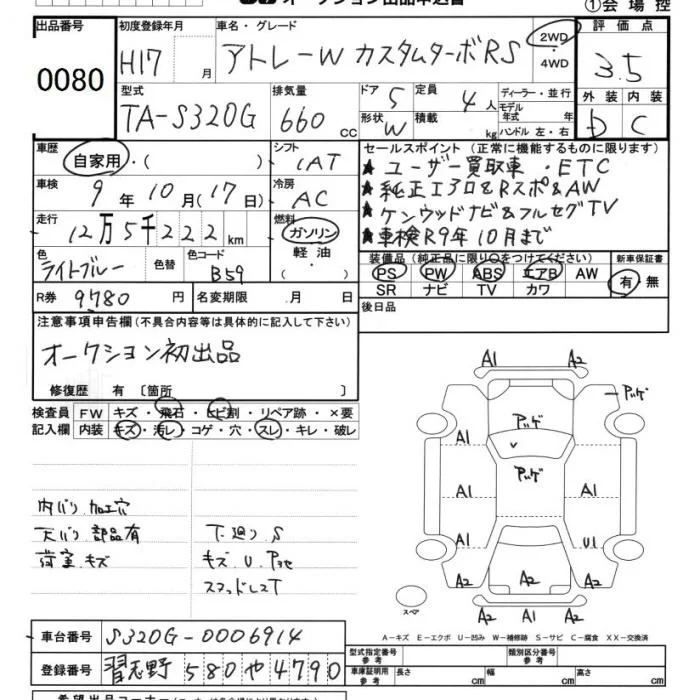 オークション出品申込書
①会場控
出品番号 0080
初度登録年月 H17 月
車名・グレード アトレーW カスタムターボRS
2WD・4WD
評価点 3.5
型式 TA-S320G
排気量 660 cc
ドア 5 形状 W
定員 4人 積載 kg
ディーラー・並行
モデル年式 年
ハンドル 左・右
外装 D 内装 C
車歴 自家用・( )
シフト IAT
車検 9年10月(17日)
冷房 AC
走行 12万5千222km
燃料 ガソリン・軽油・
色 ライトブルー 色替 色コード B59
R券 9780円 名変期限 .月 日
セールスポイント (正常に機能するものに限ります)
★ユーザー買取車・ETC
★純正エアロ&Rスポ&AW
★ケンウッドナビ&フルセグTV
★車検R9年10月まで
装備品(純正品に限り○をつけてください)
新車保証書
PS PW ABS エアB AW
SR ナビ TV カワ
有・無
後日品
注意事項申告欄(不具合内容等は具体的に記入して下さい)
オークション初出品
修復歴 有 〔箇所 〕
検査員 FW キズ・飛石・ヒビ割・リペア跡・×要
記入欄 内装 キズ・汚レ・コゲ・穴・スレ・キレ・破レ
内バリ 加工穴
天バリ 部品有
荷室.キズ
下廻り S
キズ.U.P他
スマッドレスT
A1 A2
アッゲ アッゲ
A1
アッゲ
A1 A1
A1 U1
A2 A2 A2
スペア
A2 A1 A2
A－キズ E－エクボ U－凹み W－補修跡 S－サビ C－腐食 XX－交換済
車台番号 S320G-0006914
登録番号 習志野 580 や 4790
型式指定番号 参考 類別区分番号 参考
車庫証明用 参考 長さ cm 幅 cm 高さ cm